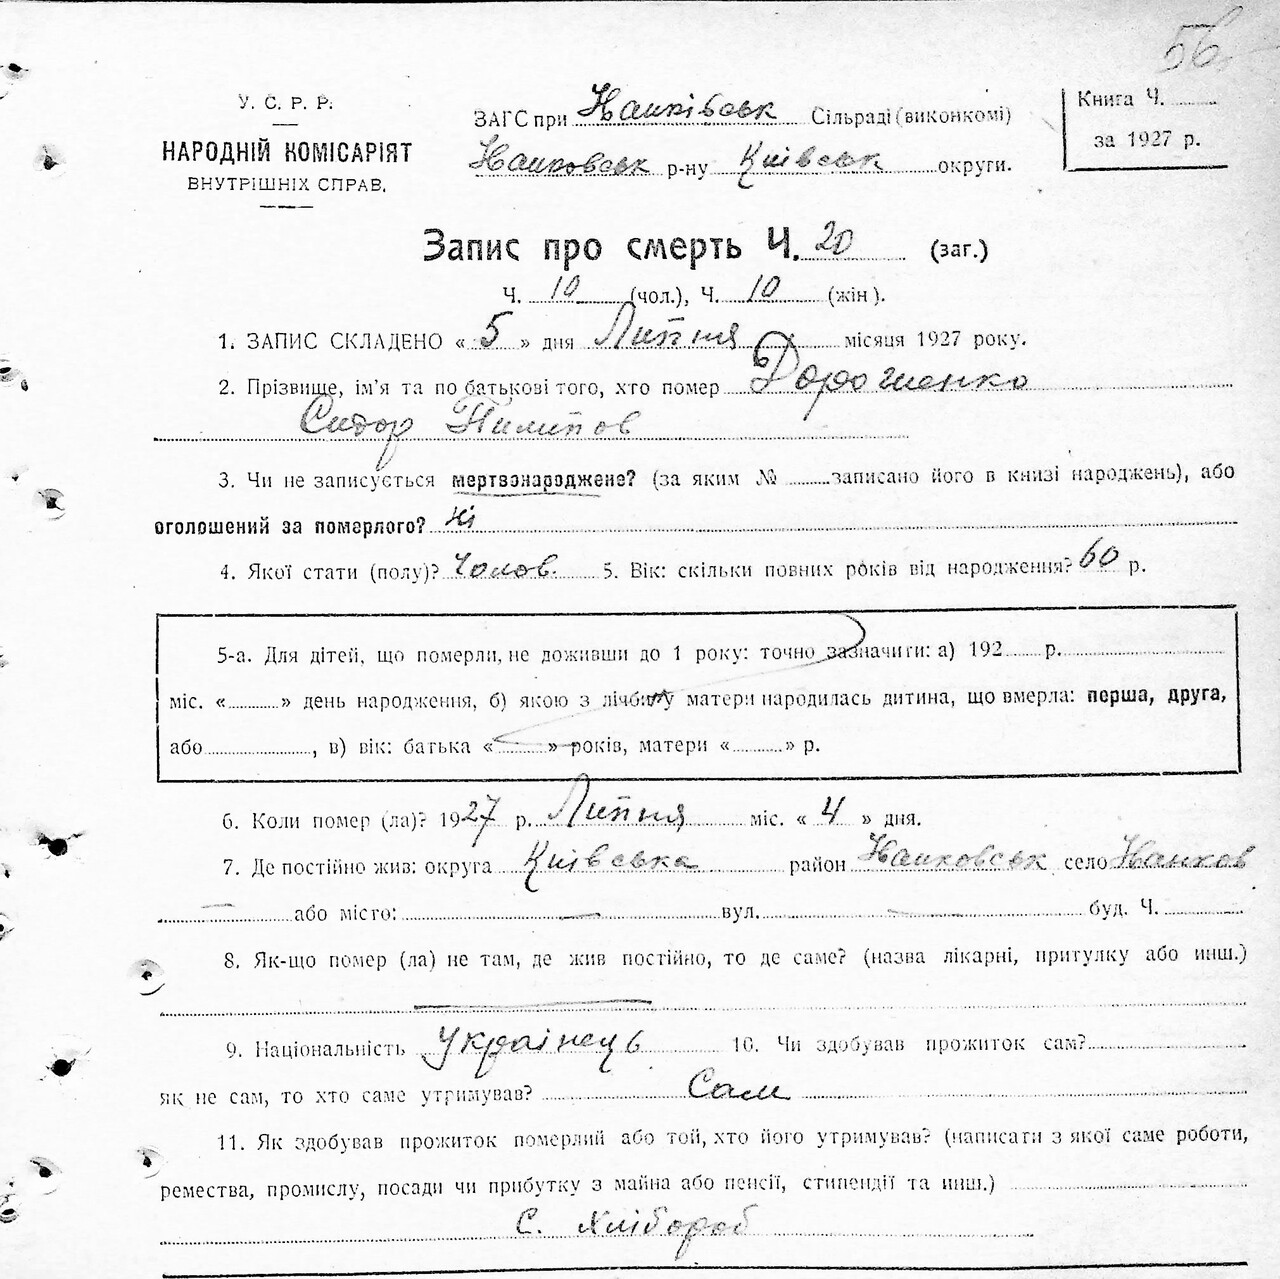 56
У. С. Р. Р.
НАРОДНІЙ КОМІСАРІЯТ
ВНУТРІШНІХ СПРАВ.
ЗАГС при Сільраді (виконкомі)
р-ну Київськ округи.
Книга Ч.
за 1927 р.
Запис про смерть Ч. 20 (заг.)
Ч. 10 (чол.), Ч. 10 (жін).
1. ЗАПИС СКЛАДЕНО « 5 » дня Липня місяця 1927 року.
2. Прізвище, ім'я та по батькові того, хто помер Дорошенко
Сидор Пилипов
3. Чи не записується мертвонароджене? (за яким № записано його в книзі народжень), або
оголошений за померлого? Ні
4. Якої стати (полу)? Чолов. 5. Вік: скільки повних років від народження? 60 р.
5-а. Для дітей, що померли, не доживши до 1 року: точно зазначити: а) 192 р.
міс. « » день народження, б) якою з лічбину матери народилась дитина, що вмерла: перша, друга,
або , в) вік: батька « » років, матери « » р.
6. Коли помер (ла)? 1927 р. Липня міс. « 4 » дня.
7. Де постійно жив: округа Київська район село
або місто: — вул. — буд. Ч.
8. Як-що помер (ла) не там, де жив постійно, то де саме? (назва лікарні, притулку або инш.)
9. Національність Українець 10. Чи здобував прожиток сам?
як не сам, то хто саме утримував? Сам
11. Як здобував прожиток померлий або той, хто його утримував? (написати з якої саме роботи,
ремества, промислу, посади чи прибутку з майна або пенсії, стипендії та инш.)
С. Хлібороб